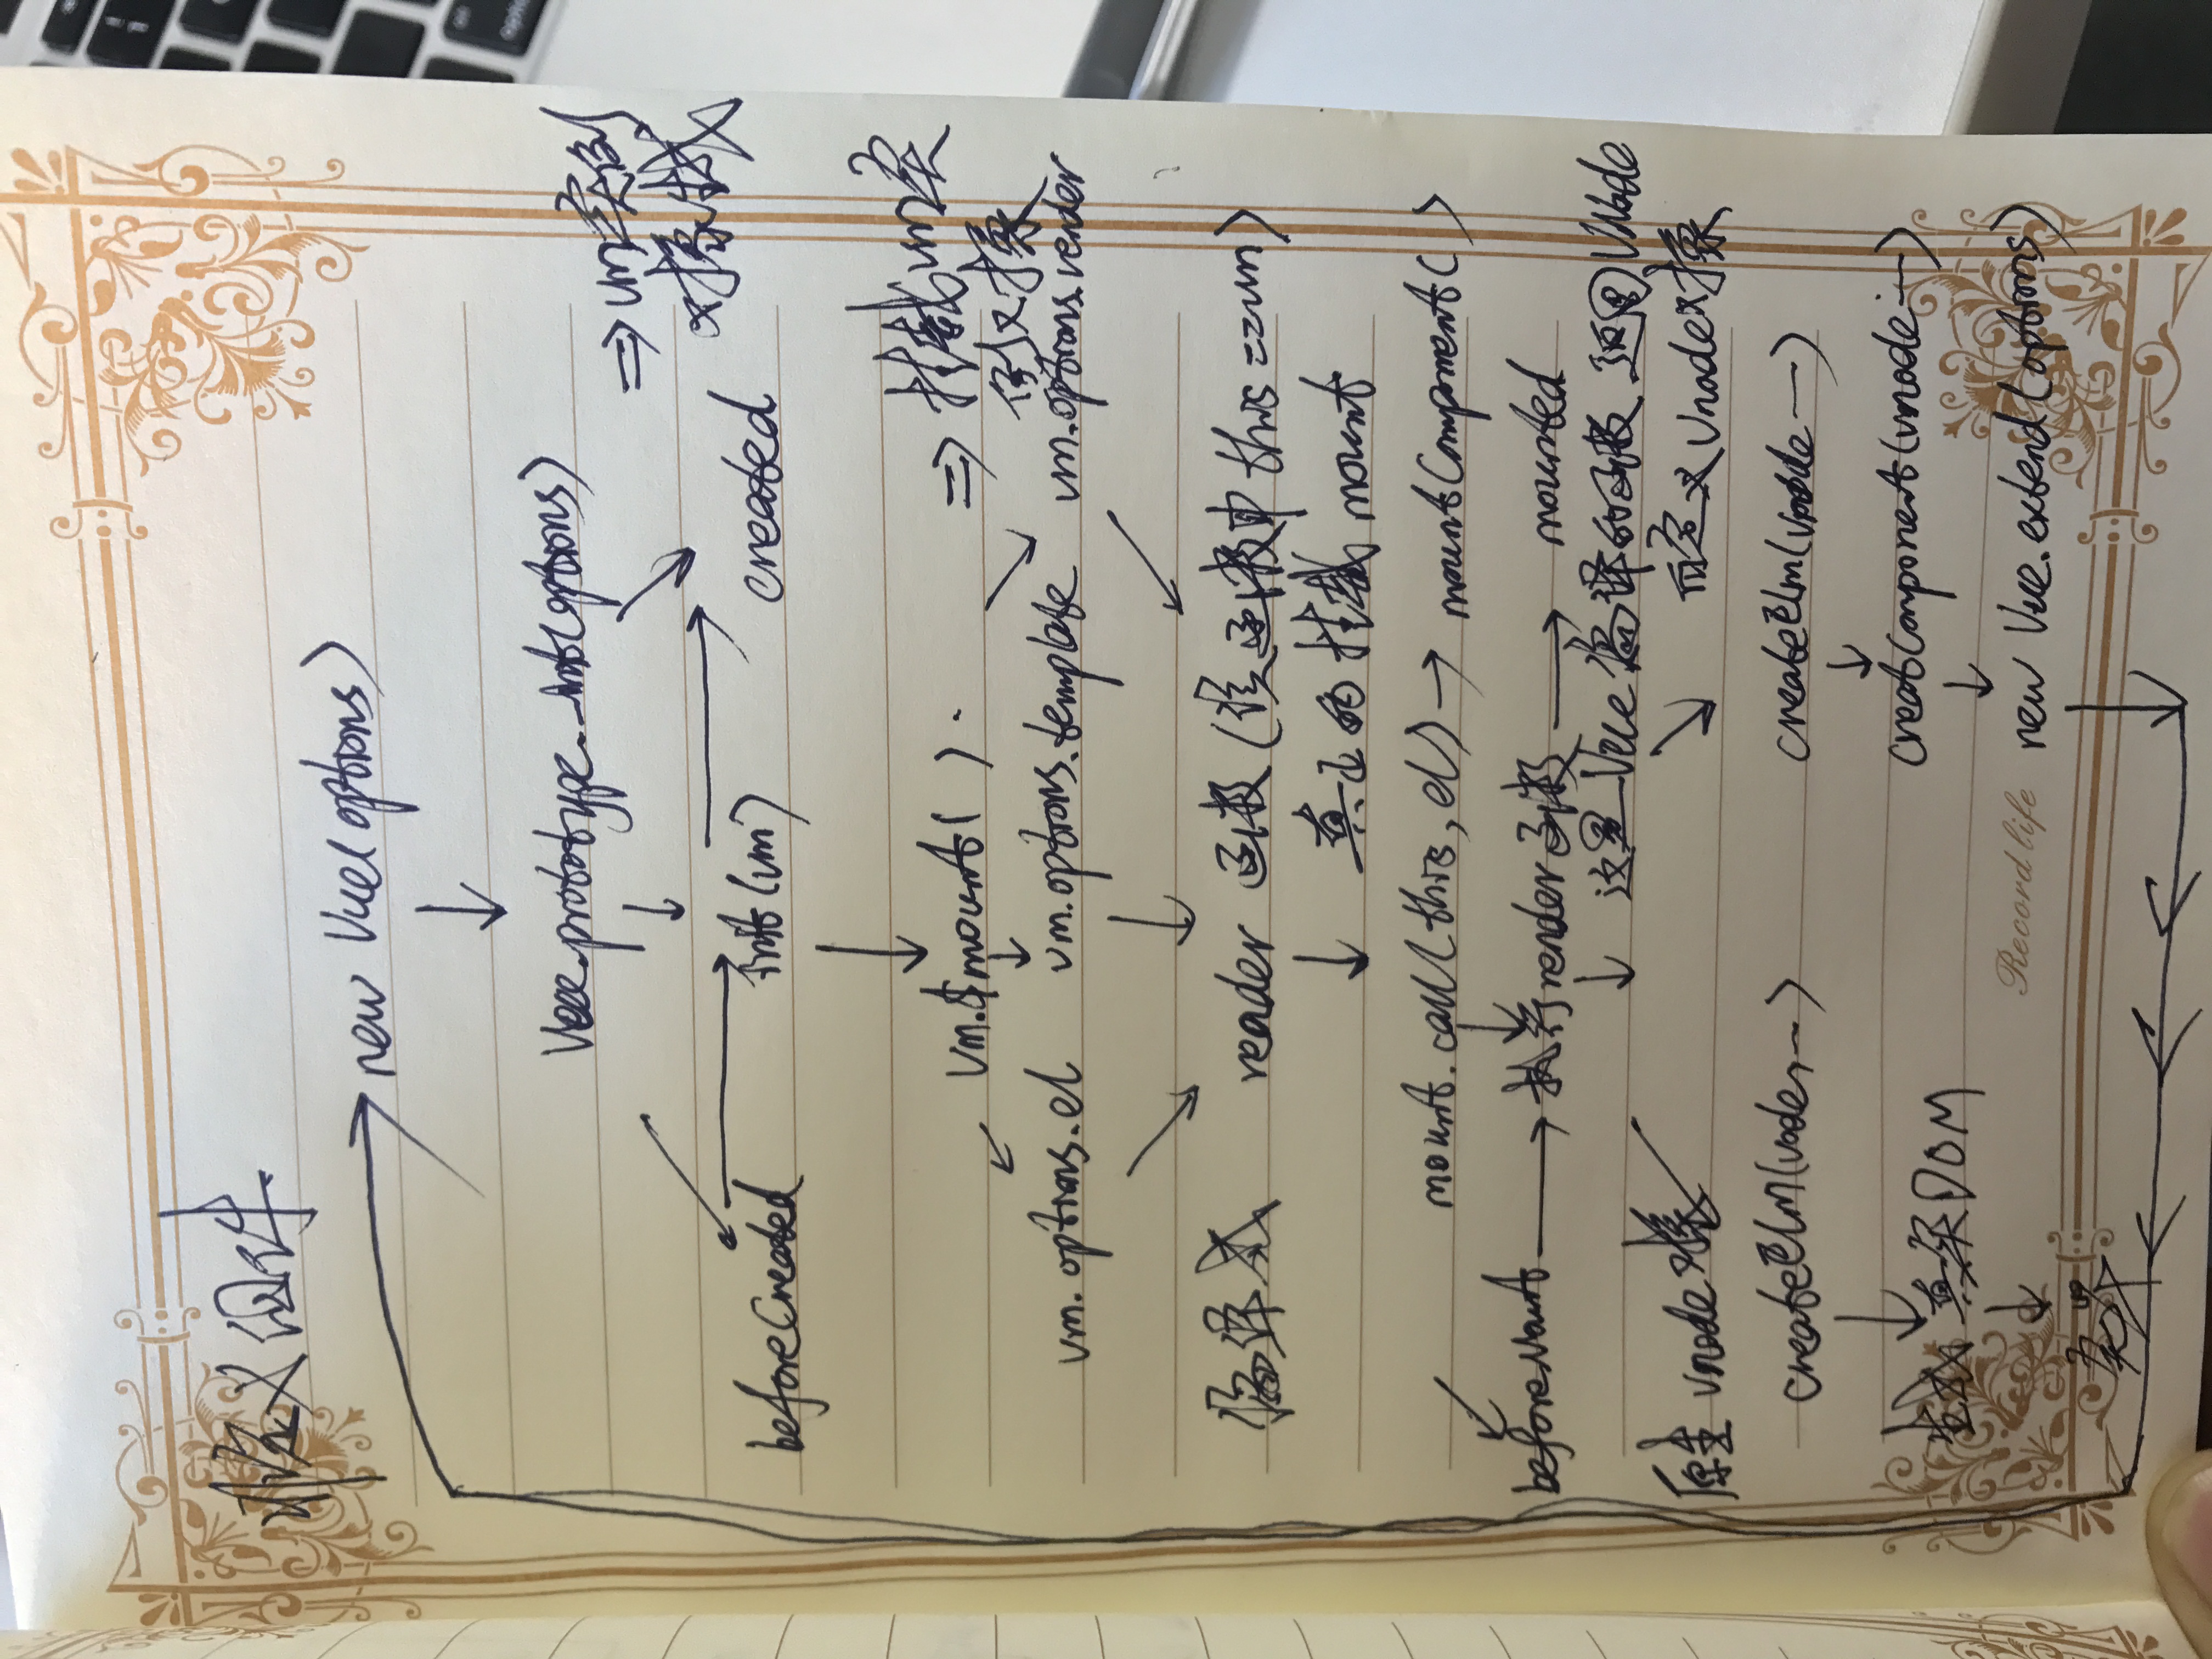 非定义组件
new Vue(options)
Vue.prototype._init(options)
⇒ vm实例
对象生成
beforeCreated init(vm) created
vm.$mount( ) ⇒ 挂载vm实
例对象
vm.options.el vm.options.template vm.options.render
编译成 reader 函数 (该函数中 this==vm)
真正的挂载 mount
mount.call(this, el) → mountComponent( )
beforeMount → 执行render函数 → mounted
这里Vue编译的函数 返回VNode
原生 vnode对象 自定义Vnode对象
createElm(vode, …) createElm(vnode …)
creatComponent(vnode …)
生成真实DOM
new Vue.extend(options)
Record life
option